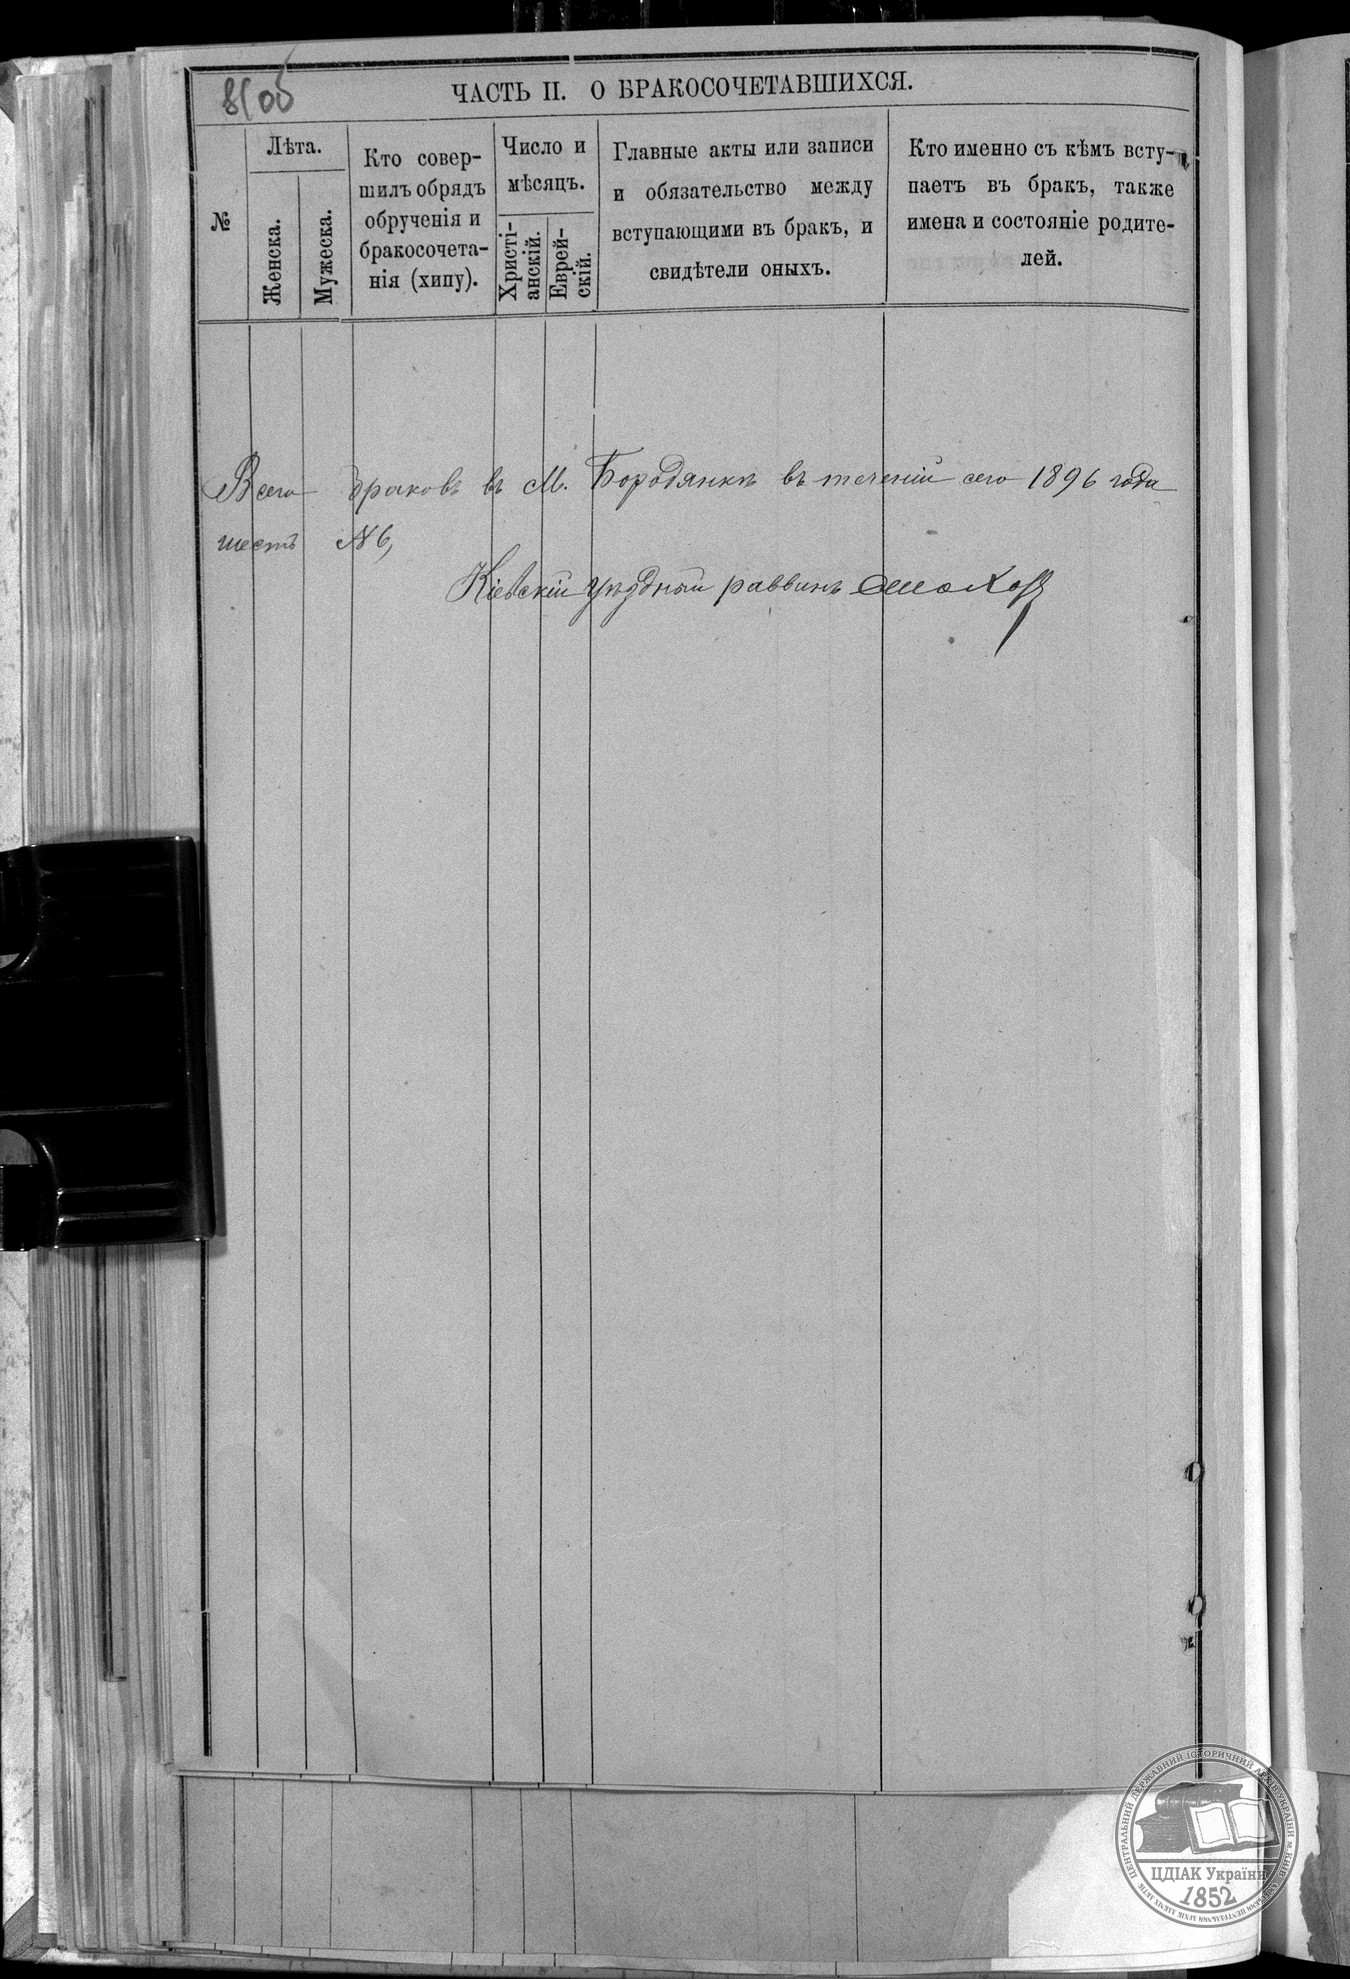 ЧАСТЬ II. О БРАКОСОЧЕТАВШИХСЯ.
№
Лѣта.
Женска.
Мужеска.
Кто совер-
шилъ обрядъ
обрученія и
бракосочета-
нія (хипу).
Число и
мѣсяцъ.
Христі-
анскій.
Еврей-
скій.
Главные акты или записи
и обязательство между
вступающими въ бракъ, и
свидѣтели оныхъ.
Кто именно съ кѣмъ всту-
паетъ въ бракъ, также
имена и состояніе родите-
лей.
Всего браковъ въ М. Бородянкѣ въ теченіи сего 1896 года
шесть №6,
Кіевскій уѣздный раввинъ
ЦЕНТРАЛЬНИЙ ДЕРЖАВНИЙ ІСТОРИЧНИЙ АРХІВ УКРАЇНИ м. КИЇВ
ЦДІАК України
1852